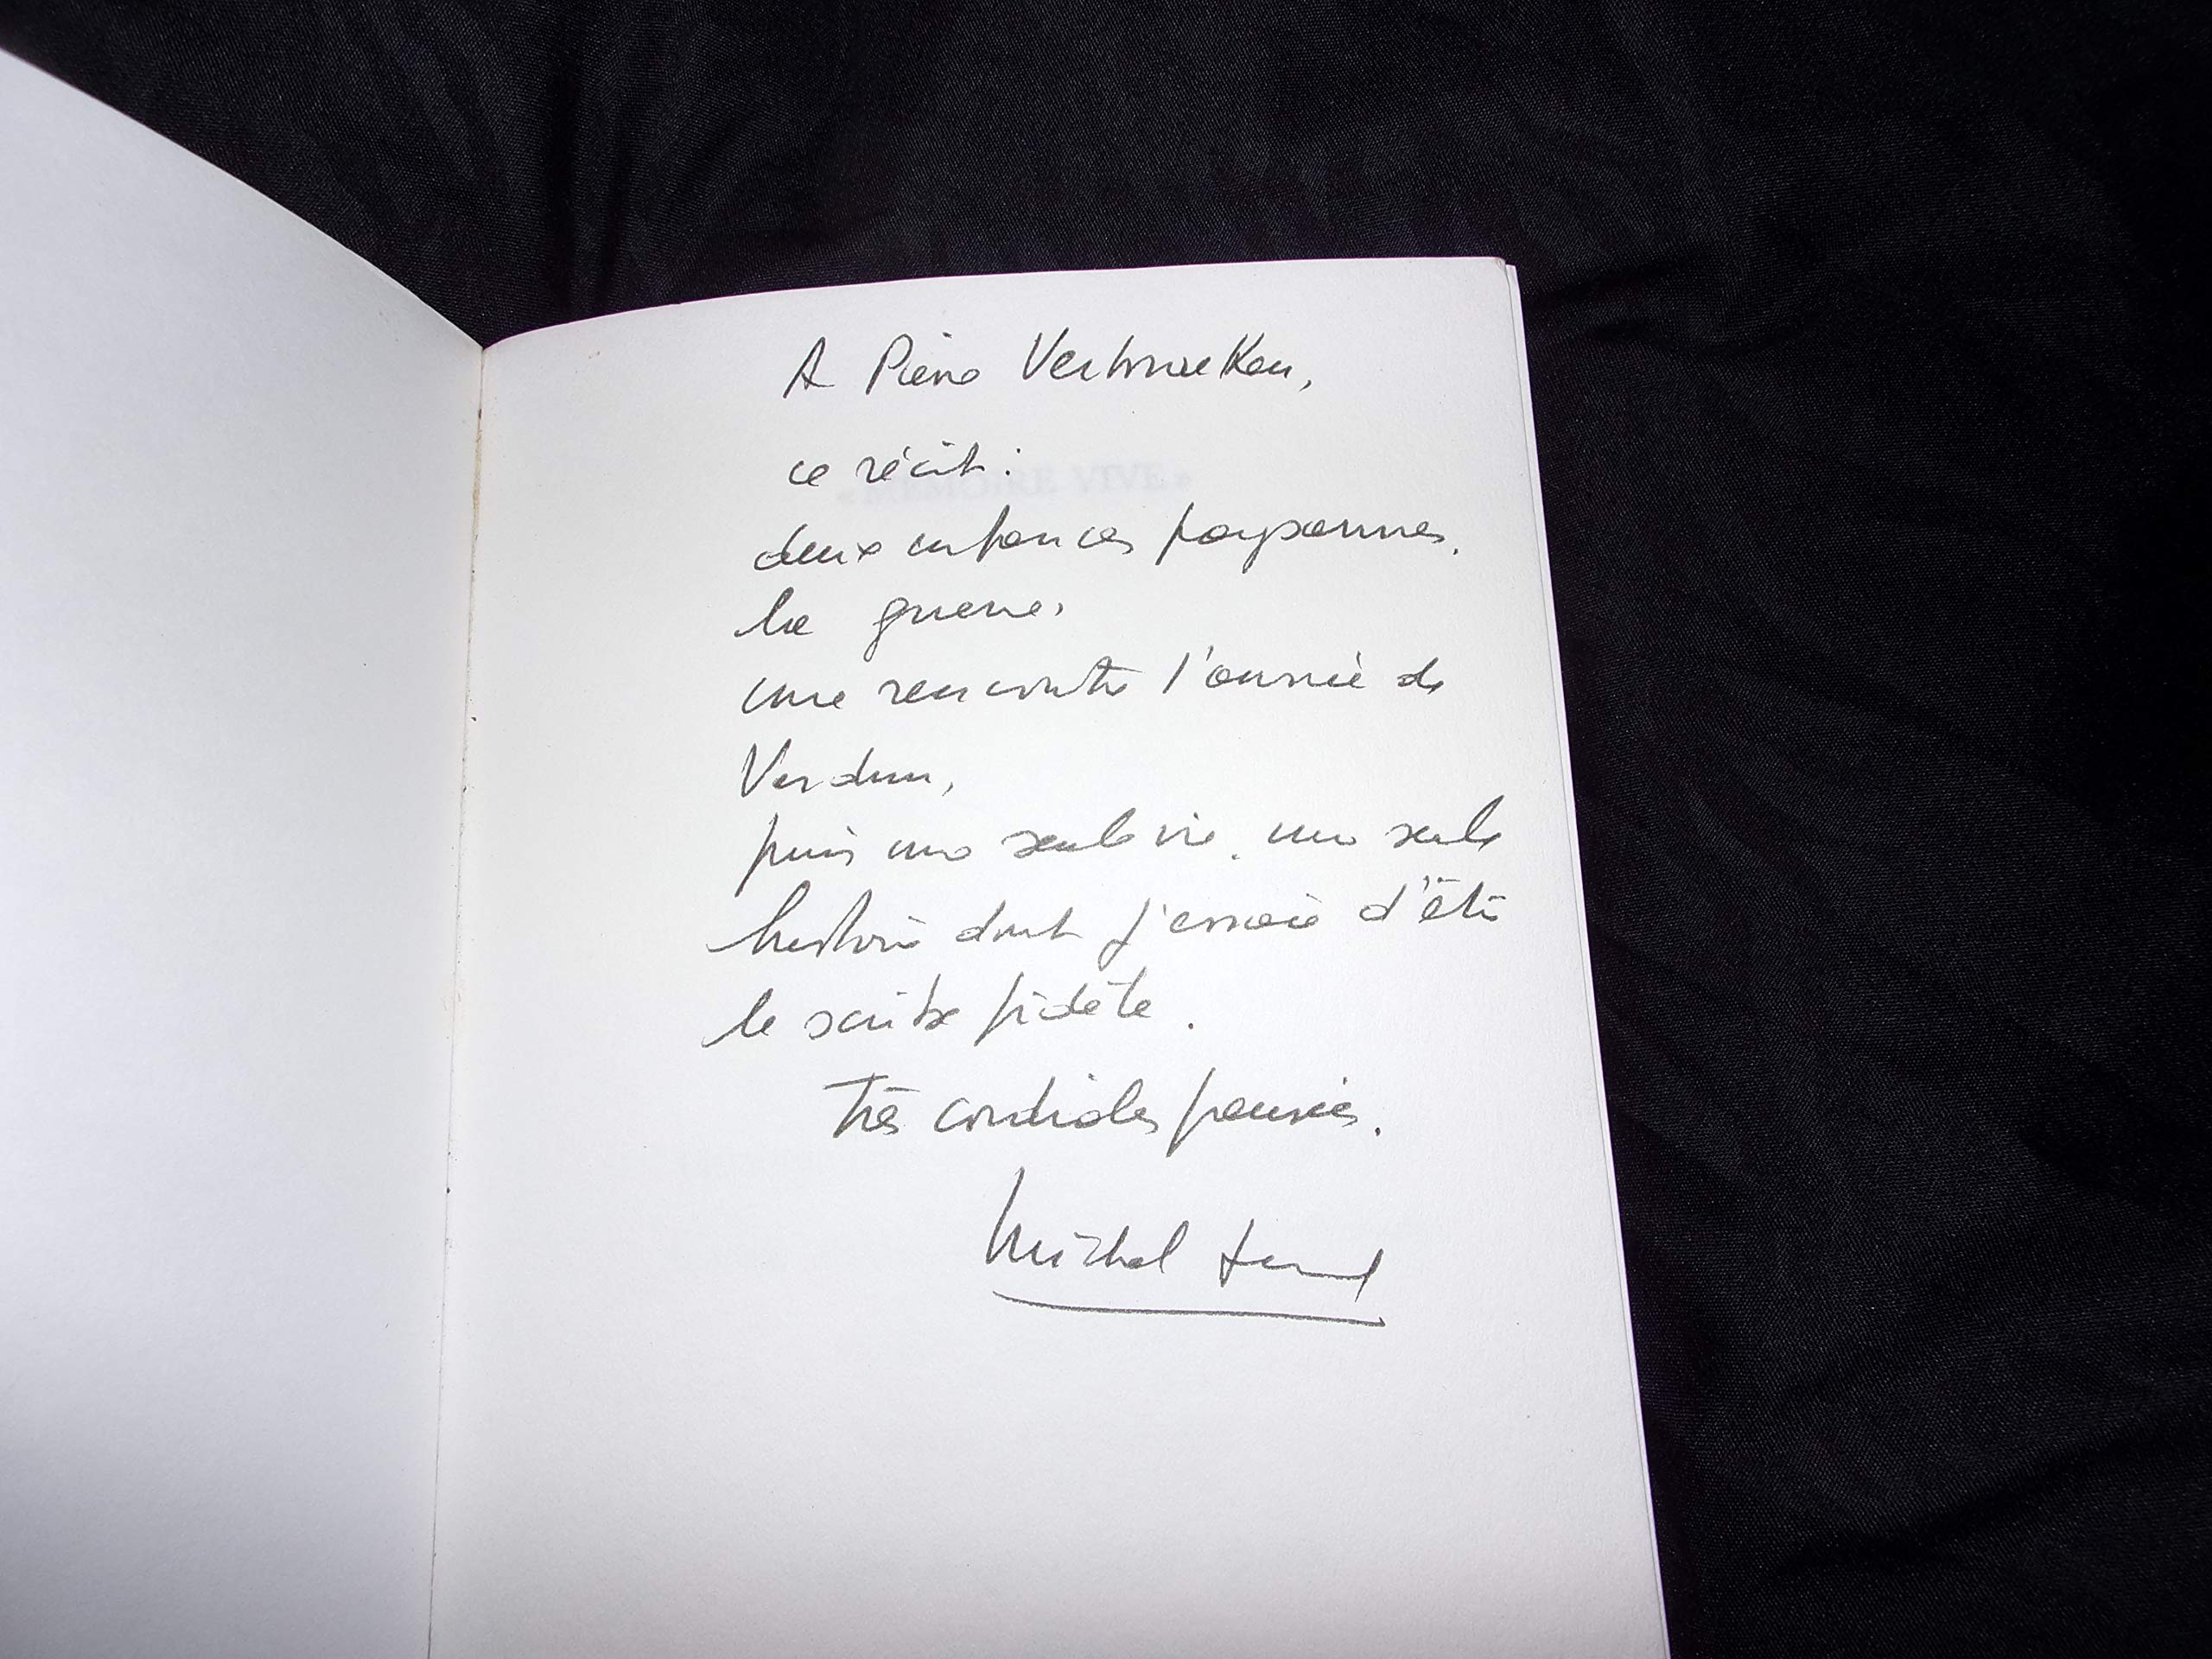 A Pierre Verbraeken,
ce récit :
« MÉMOIRE VIVE »
deux enfances paysannes,
la guerre,
une rencontre l'année de
Verdun,
puis une seule vie, une seule
histoire dont j'essaie d'être
le scribe fidèle.
Très cordiales pensées.
Michel